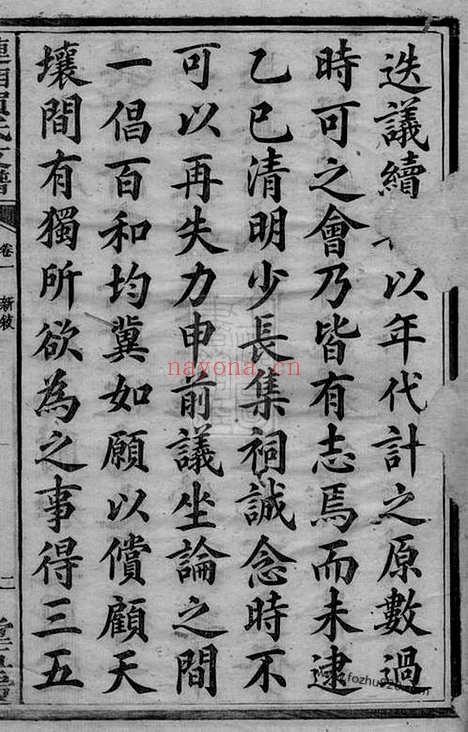 迭議續以年代計之原數過
時可之會乃皆有志焉而未逮
乙巳清明少長集祠誠念時不
可以再失力申前議坐論之間
一倡百和均冀如願以償顧天
壤間有獨所欲為之事得三五
卷一 新敘
二
nayona.cn
www.fozhu920.com